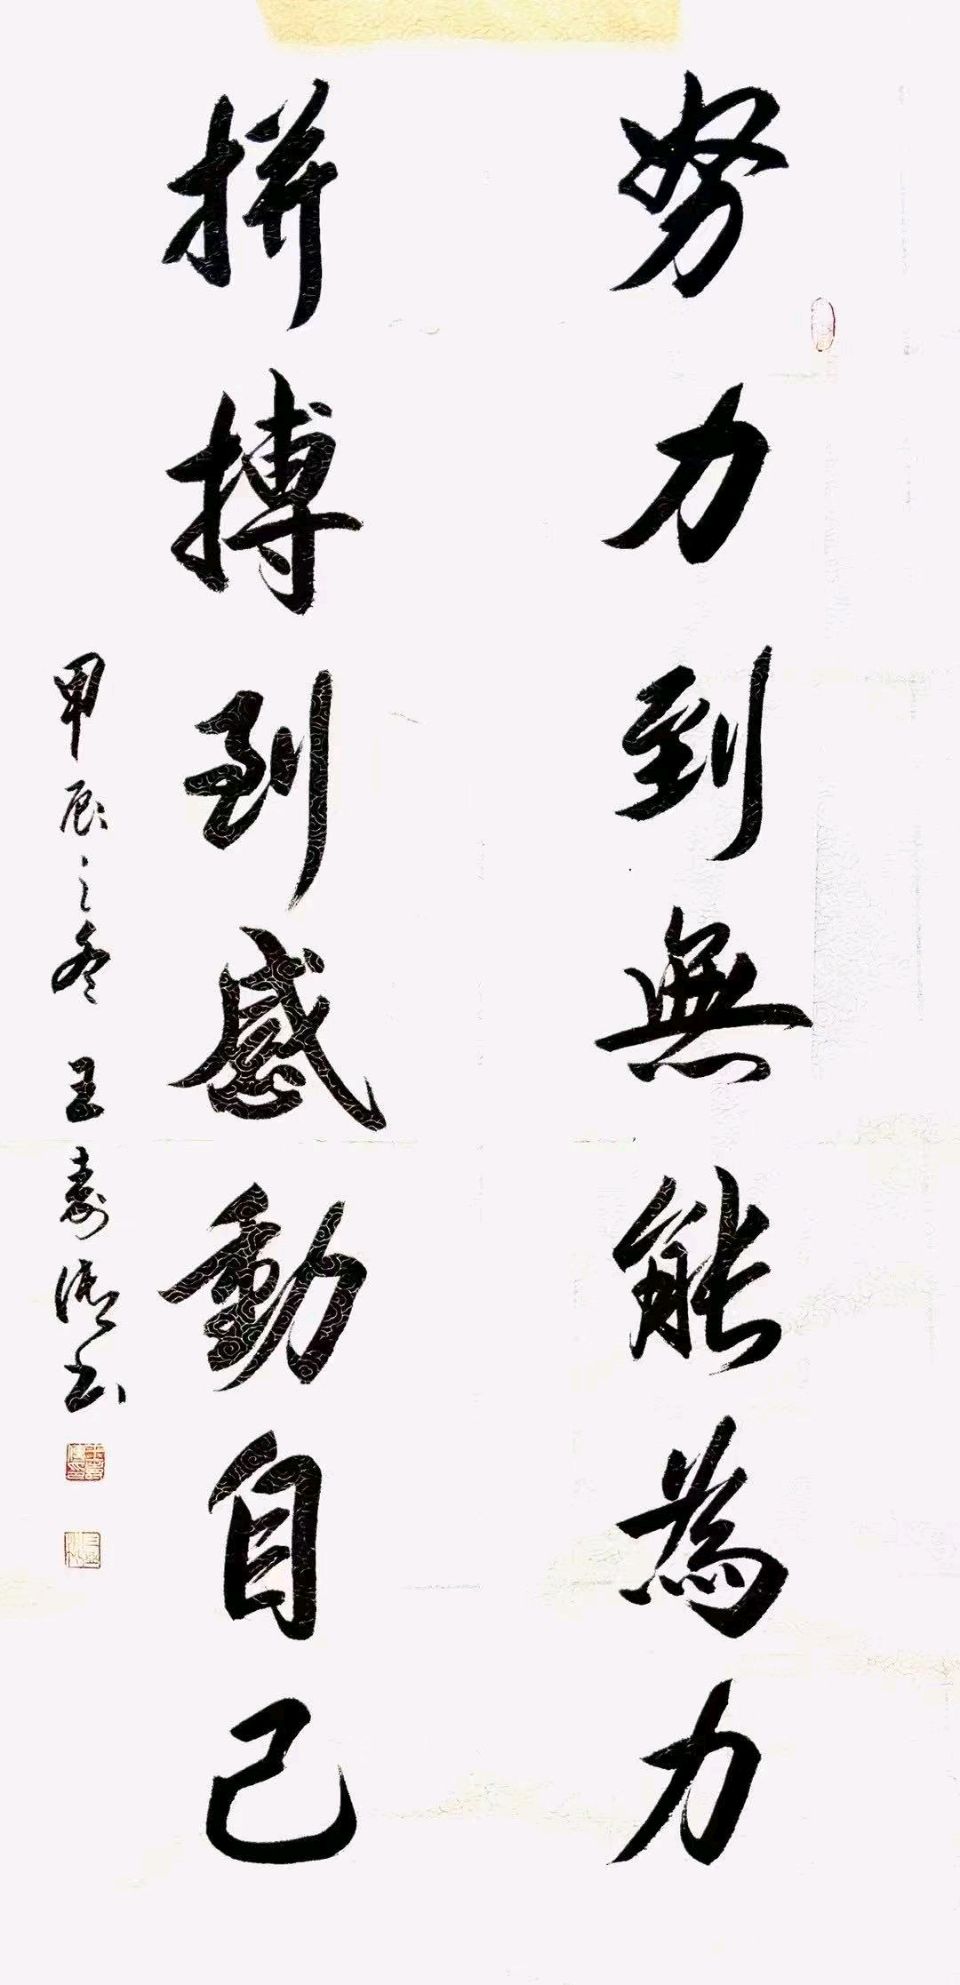 努力到無能為力
拼搏到感動自己
甲辰之冬 王壽濤书